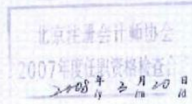 北京注册会计师协会
2007年度任职资格检查
2008年2月20日